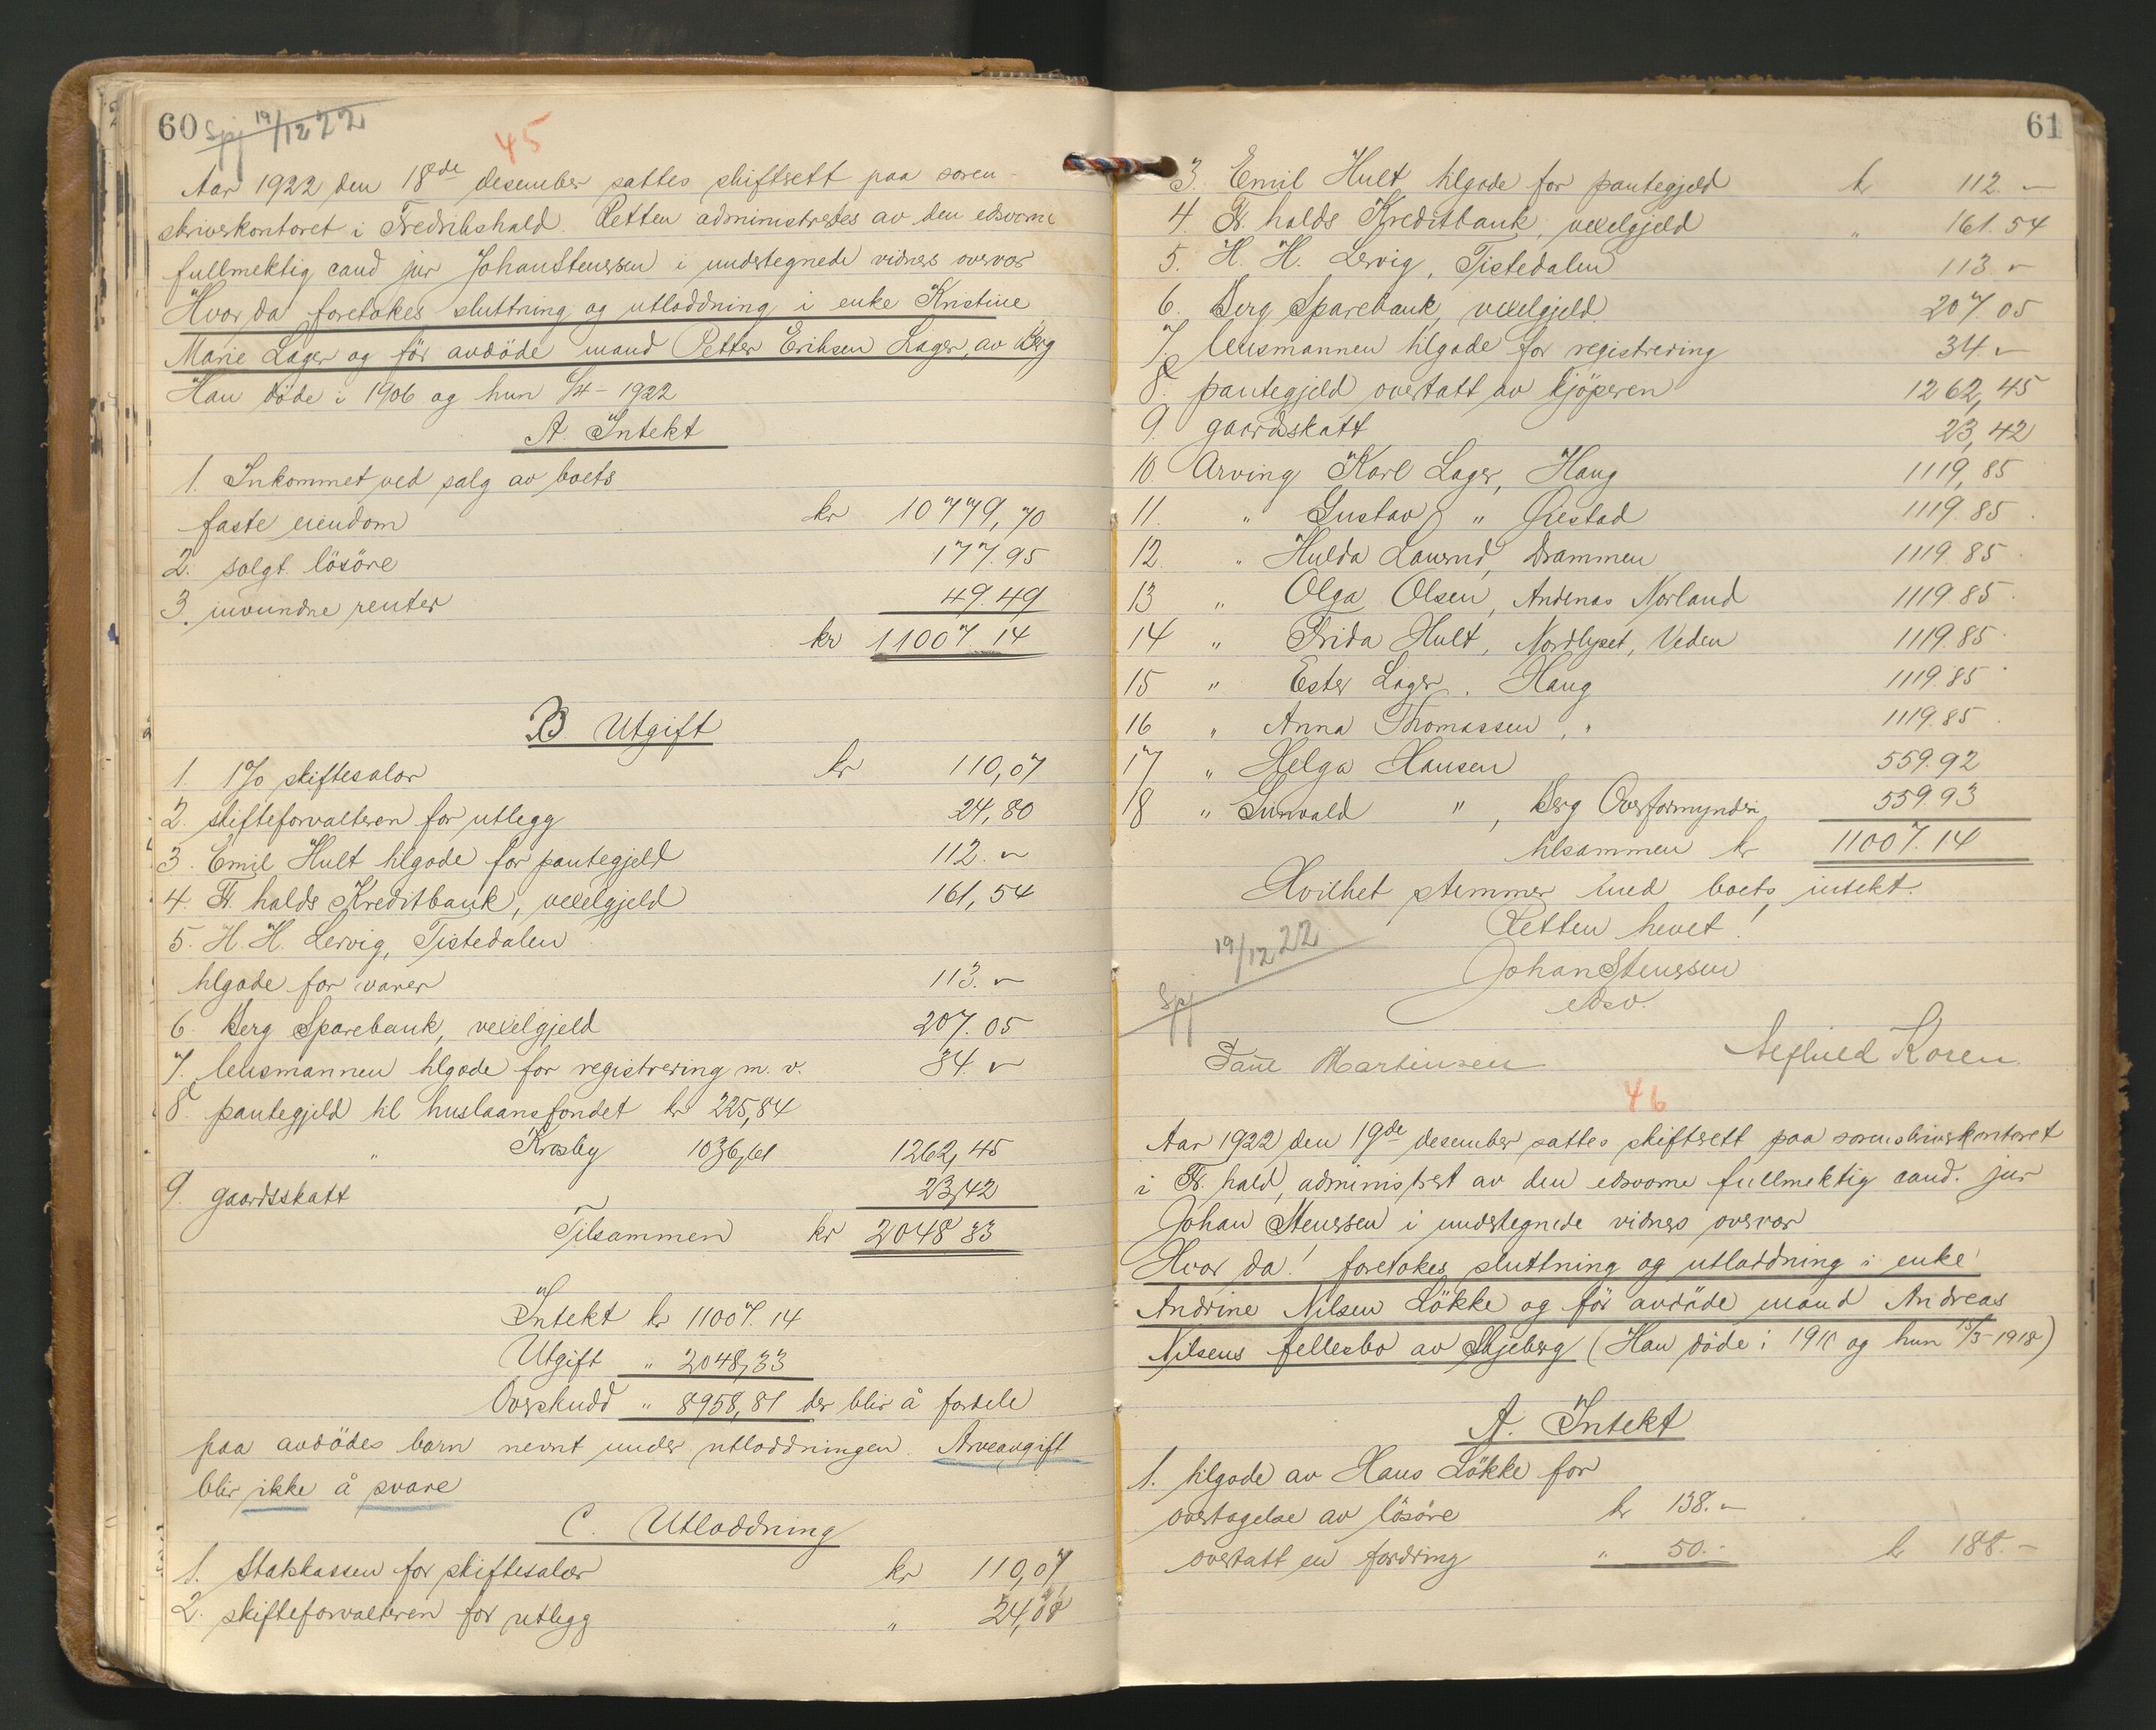 60
Spj 19/12 22
45
Aar 1922 den 18de desember sattes skiftsrett paa soren-
skriverkontoret i Fredrikshald. Retten administrertes av den edsvorne
fullmektig cand jur Johan Stenersen i undertegnede vidners overvær
Hvor da foretokes sluttning og utloddning i enke Kristine
Marie Lager og før avdøde mand Petter Eriksen Lager, av Berg
Han døde i 1906 og hun 6/4 - 1922
A. Intekt
1. Inkommet ved salg av boets
faste eiendom kr 10779,70
2. solgt løsøre 177.95
3. invundne renter 49.49
kr 11007.14
B Utgift
1. 1% skiftesalær kr 110,07
2. skifteforvalteren for utlegg 24,80
3. Emil Hult tilgode for pantegjeld 112. -
4. Fr. halds Kreditbank, vexelgjeld 161,54
5. H. H. Lervig, Tistedalen
tilgode for varer 113. -
6. Berg Sparebank, vexelgjeld 207.05
7. lensmannen tilgode for registrering m. v. 34. -
8. pantegjeld til huslaansfondet kr 225,84
" Krosby 1036,61 1262,45
9. gaardsskatt 23,42
Tilsammen kr 2048 33
Intekt kr 11007.14
Utgift " 2048,33
Overskudd " 8958,81 der blir å fordele
paa avdødes barn nevnt under utloddningen. Arveavgift
blir ikke å svare
C. Utloddning
1. Statskassen for skiftesalær kr 110,07
2. skifteforvalteren for utlegg " 24,80
61
3. Emil Hult tilgode for pantegjeld kr 112. -
4. Fr. halds Kreditbank, vexelgjeld " 161.54
5. H. H. Lervig, Tistedalen 113. -
6. Berg Sparebank, vexelgjeld 207.05
7. lensmannen tilgode for registrering 34. -
8. pantegjeld overtatt av kjøperen 1262,45
9. gaardsskatt 23,42
10. Arving Karl Lager, Haug 1119,85
11. " Gustav " Ørestad 1119.85
12. " Hulda Laurud, Drammen 1119.85
13 " Olga Olsen, Andenæs Norland 1119.85
14 " Frida Hult, Nordlyset, Veden 1119.85
15 " Ester Lager, Haug 1119.85
16 " Anna Thomassen, " 1119.85
17 " Helga Hansen 559.92
18 " Gunvald ", Berg Overformynderi 559.93
tilsammen kr 11007.14
Hvilket stemmer med boets intekt.
Retten hevet!
19/12 22
Spj
Johan Stenersen
edsv.
Martinsen Koren
46
Aar 1922 den 19de desember sattes skiftsrett paa sorenskriverkontoret
i Fr. hald, administrert av den edsvorne fullmektig cand. jur
Johan Stenersen i undertegnede vidners overvær
Hvor da! foretokes sluttning og utloddning i enke
Andrine Nilsen Løkke og før avdøde mand Andreas
Nilsens fellesbo av Skjeberg (Han døde i 1910 og hun 15/3-1918)
A. Intekt
1. tilgode av Hans Løkke for
overtagelse av løsøre kr 138. -
overtatt en fordring " 50. - kr 188. -